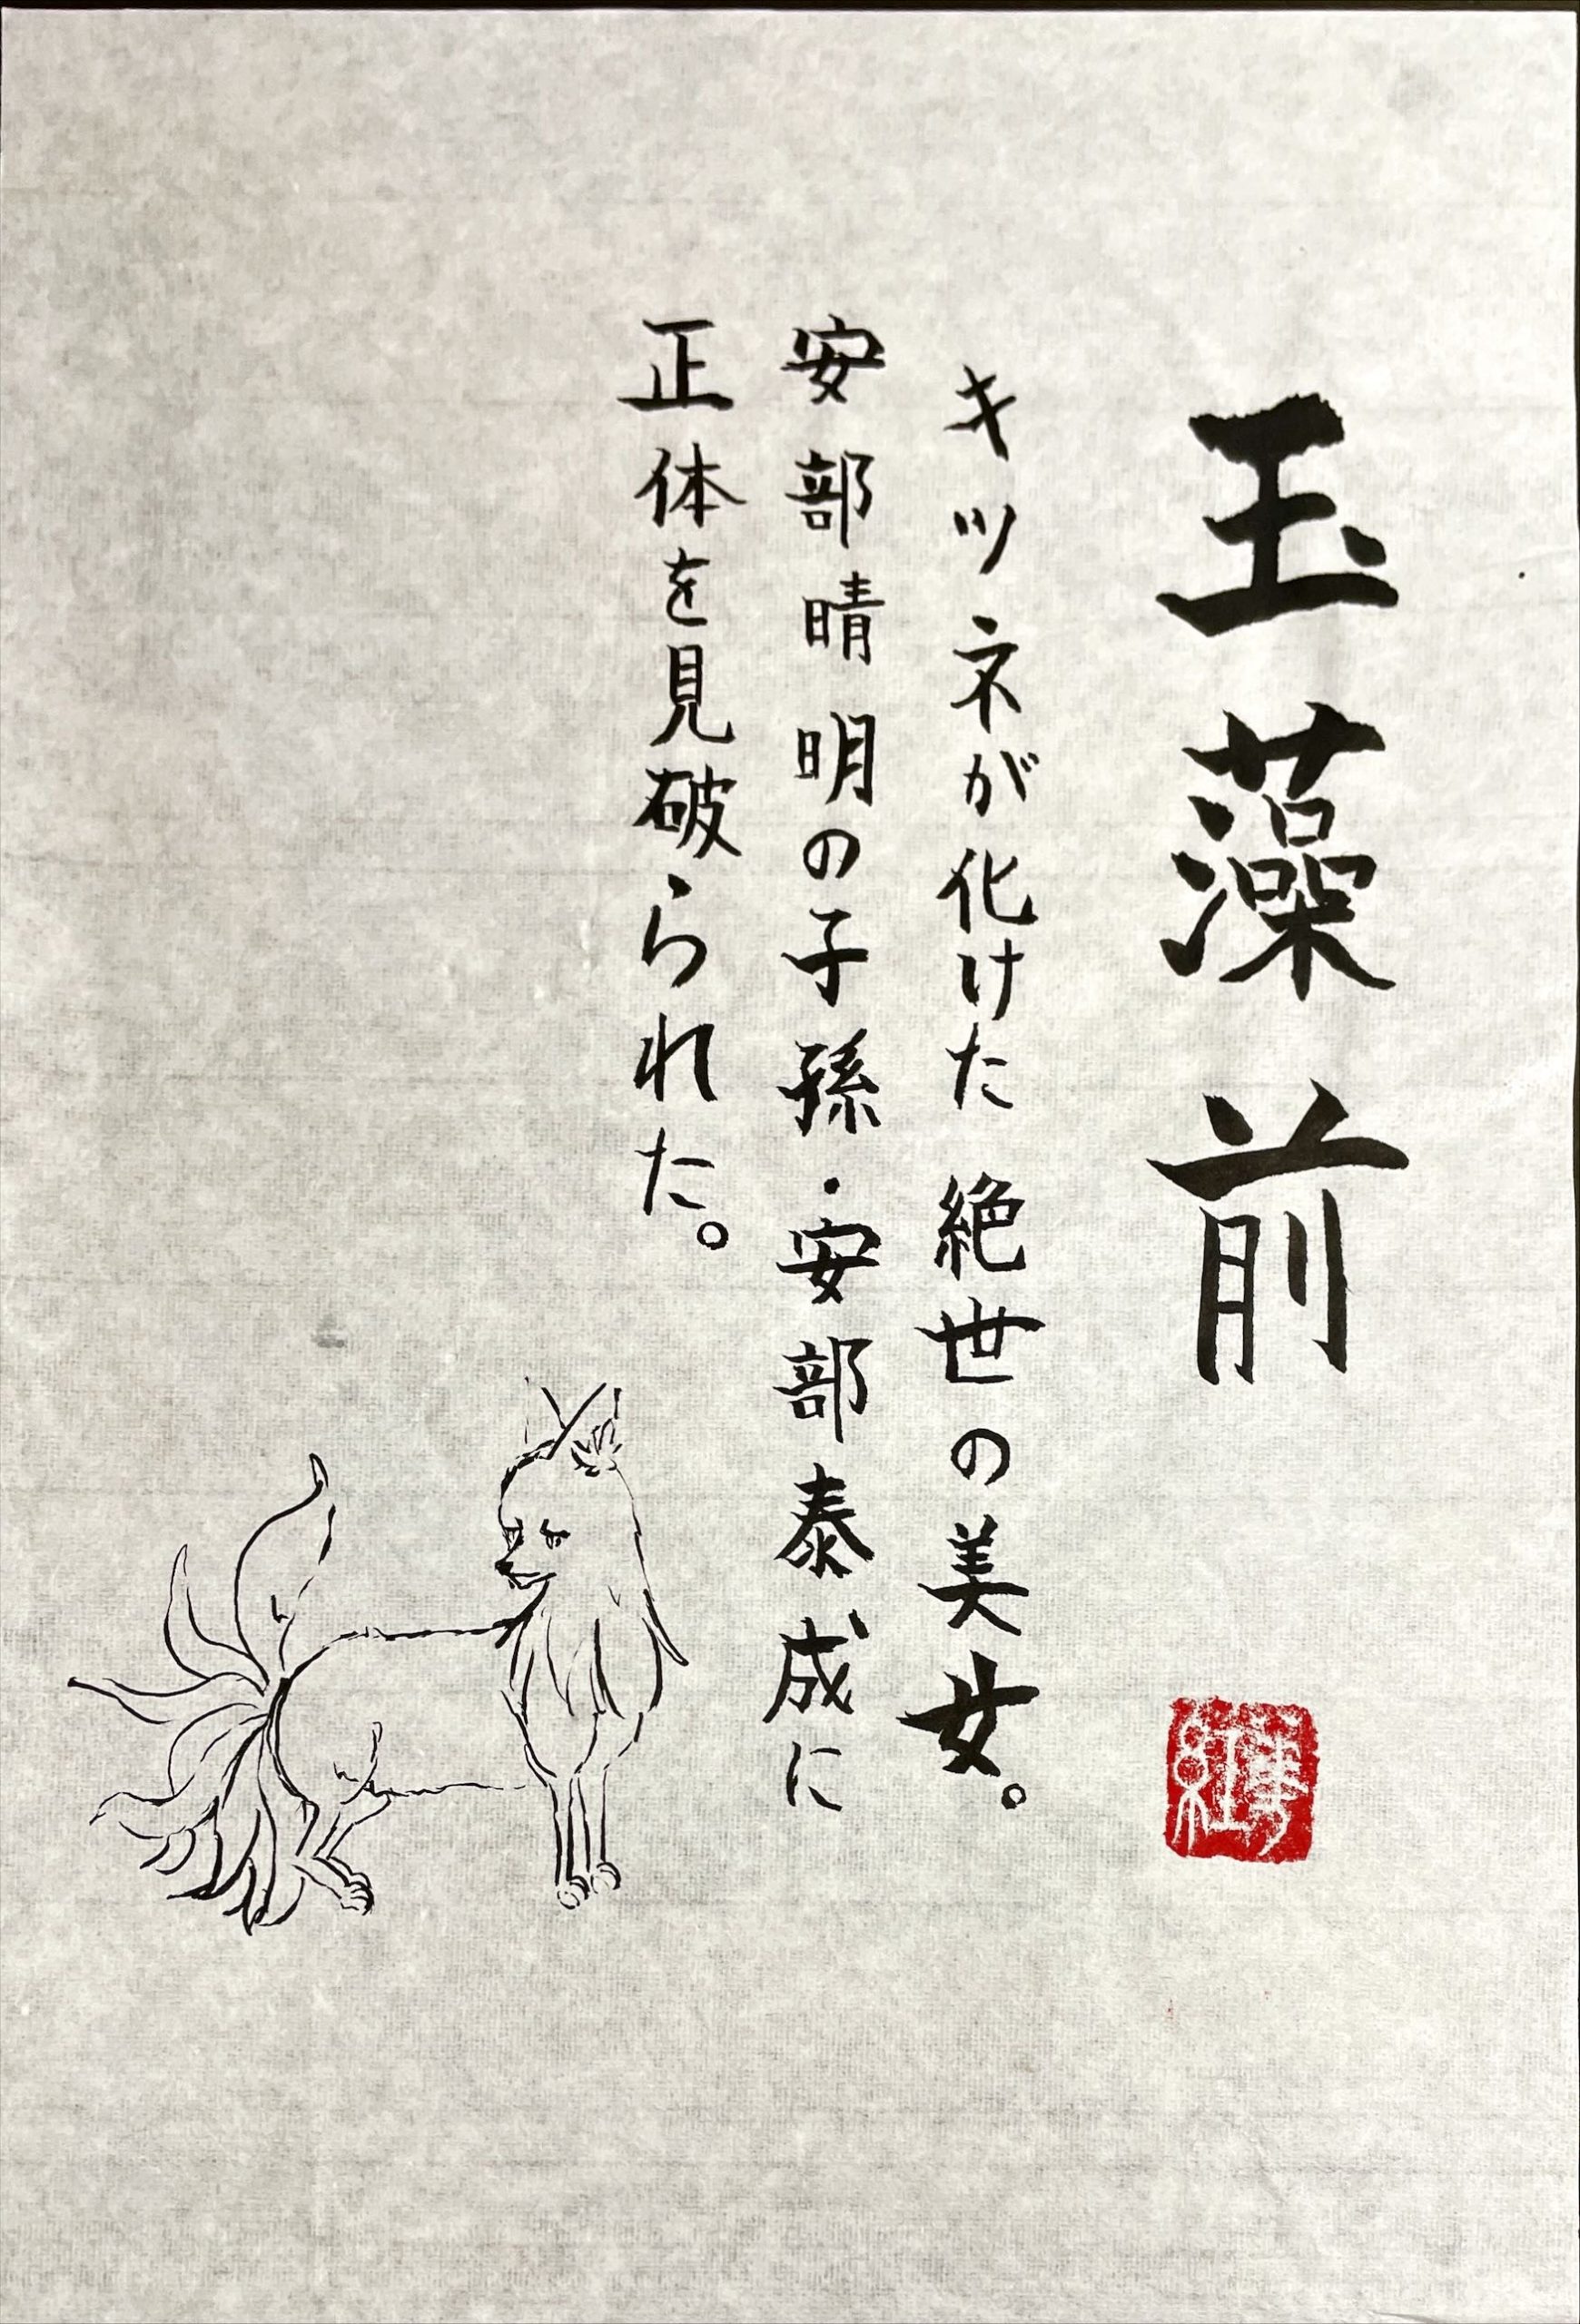 玉藻前
キツネが化けた絶世の美女。
安部晴明の子孫・安部泰成に
正体を見破られた。